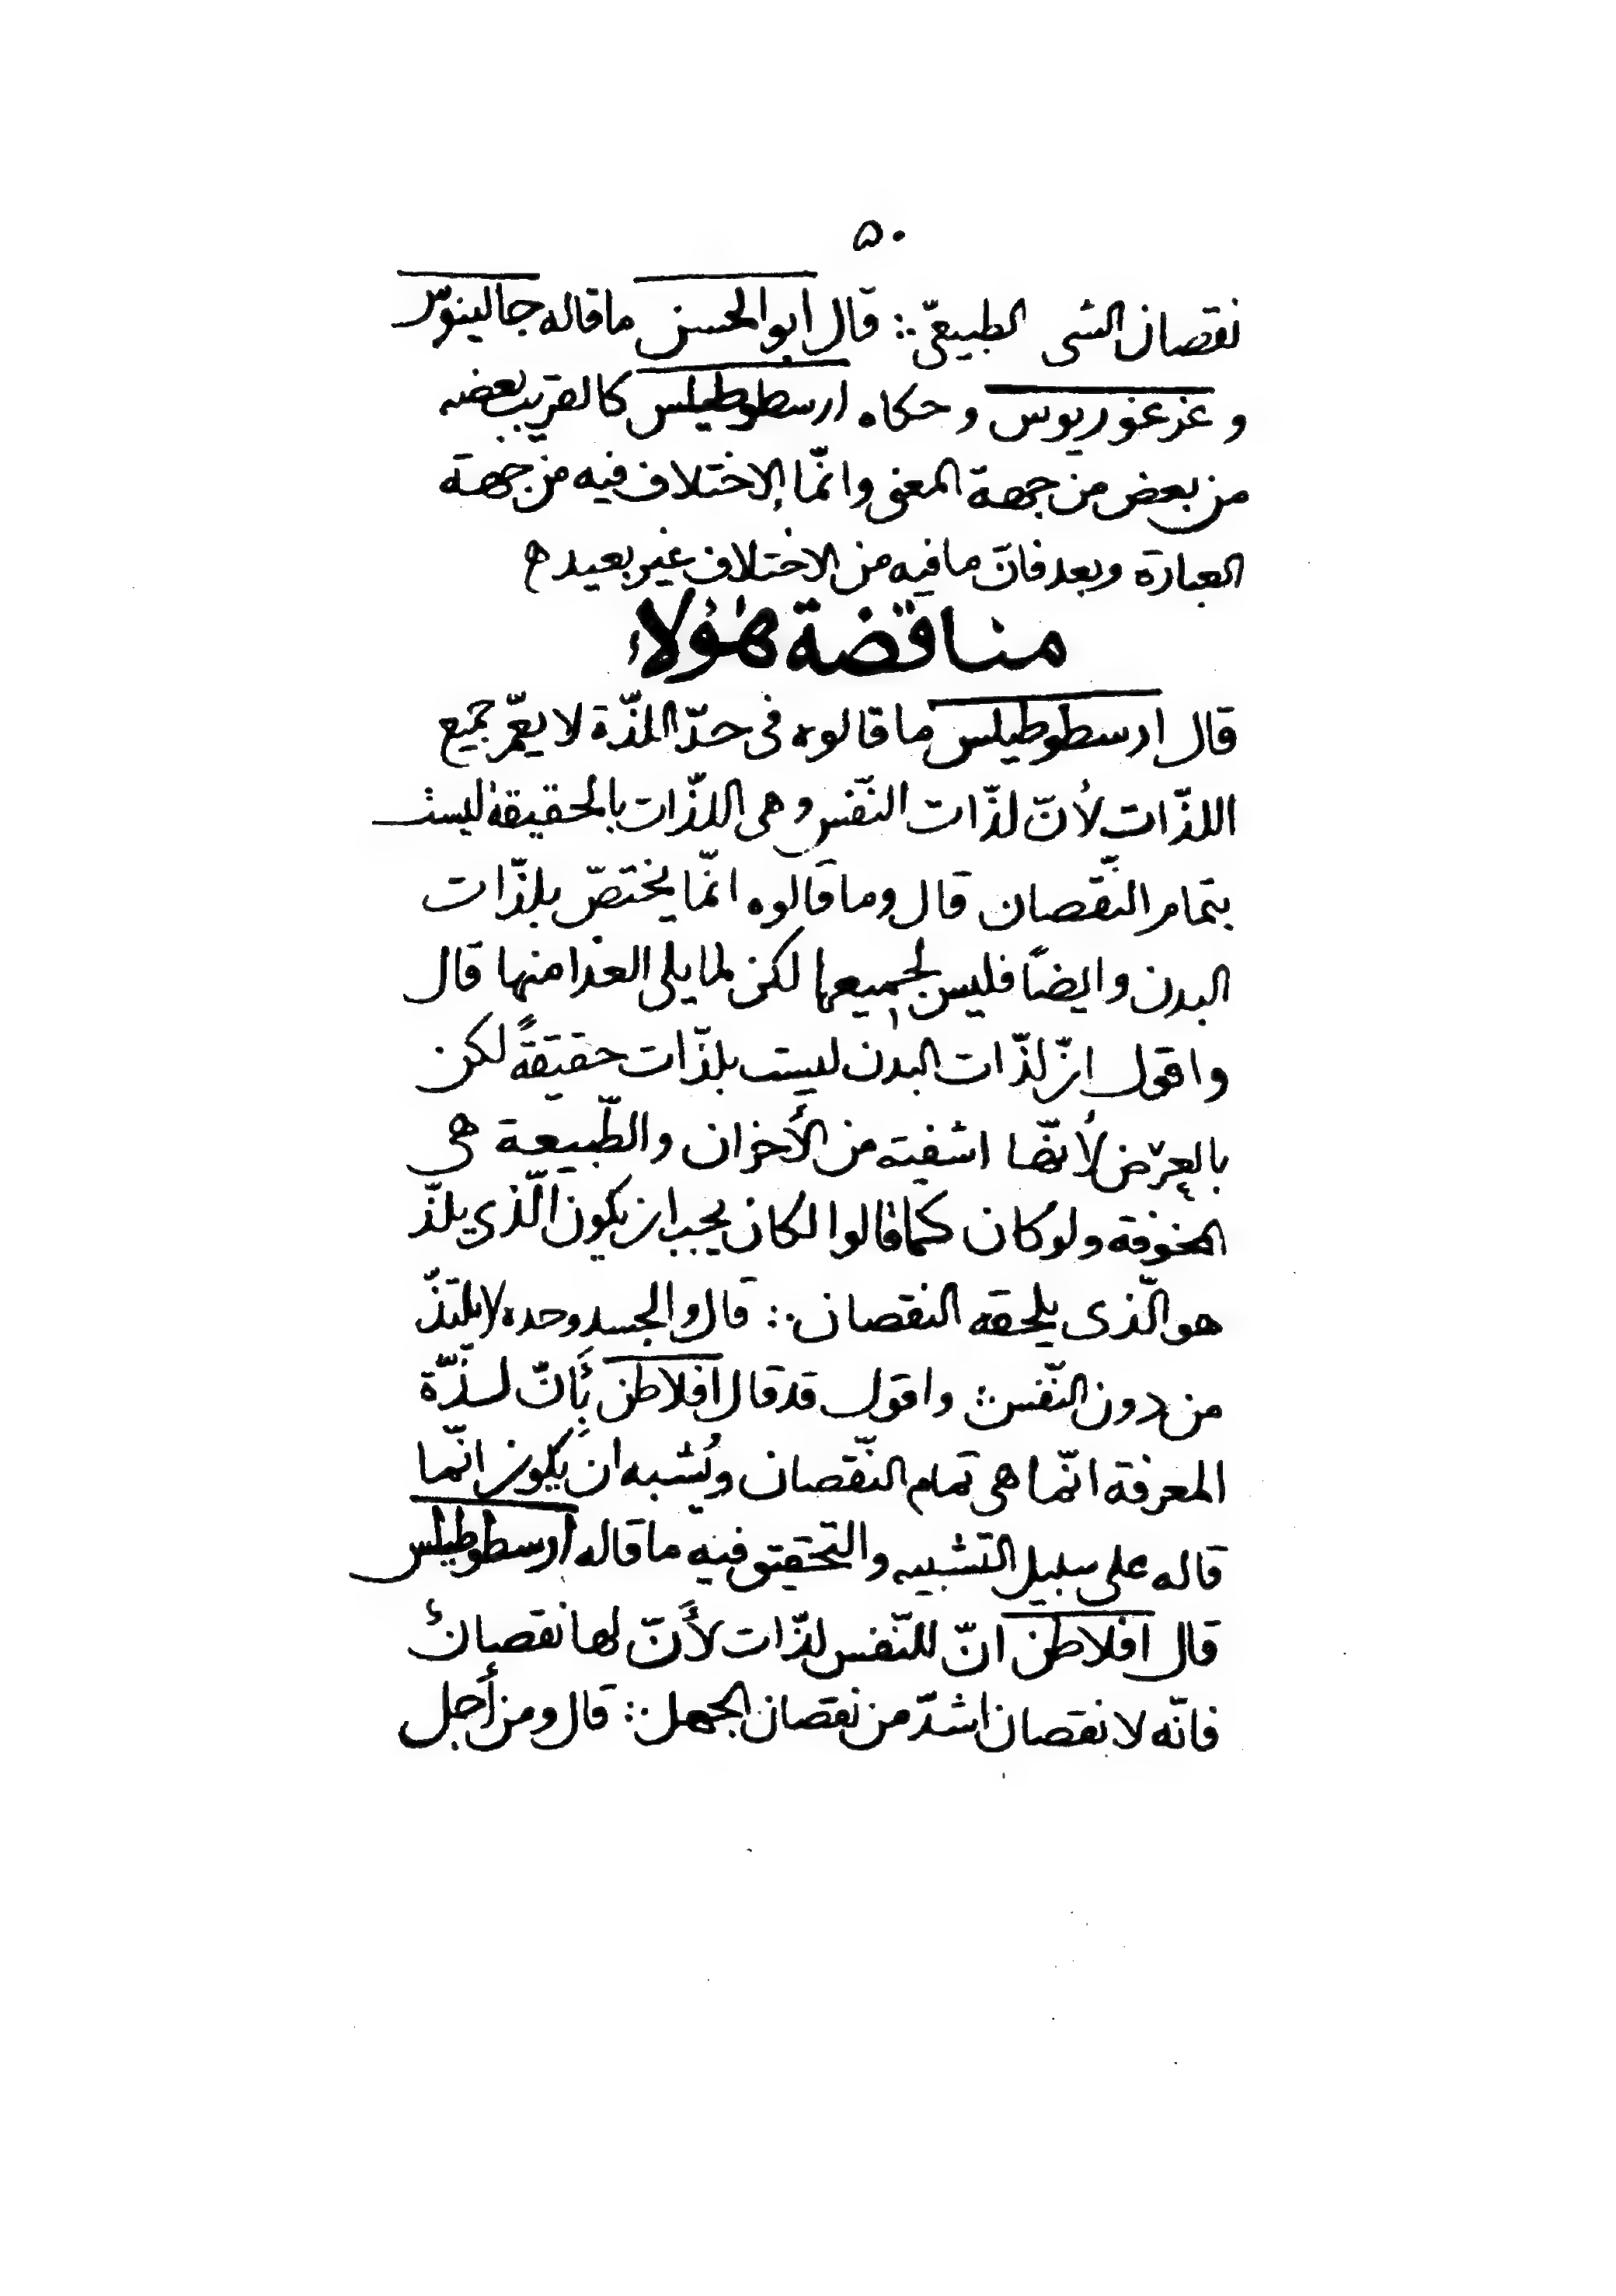 ۵۰
نقصان الشى الطبيعىّ ∴ قال ابو الحسن ما قاله جالينوس
و غرغوريوس و حكاه ارسطوطيلس كالقريب بعضه
من بعض من جهة المعنى وانّما الإختلاف فيه من جهة
العبارة وبعد فانّ ما فيه من الاختلاف غير بعيد ه
مناقضة هٰؤلاء
قال ارسطوطيلس ما قالوه فى حدّ اللذّة لا يعمّ جميع
اللذّات لأنّ لذّات النّفس و هى اللذّات بالحقيقة ليست
بتمام النّقصان قال وما قالوه انّما يختصّ بلذّات
البدن وايضاً فليس لجميعها لكن لما يلى الغذا منها قال
واقول انّ لذّات البدن ليست بلذّات حقيقةً لكن
بالعرض لأنّها اشفية من الأحزان والطّبيعة هى
ولو كان كما قالوا لكان يجب ان يكون الّذى يلذّ
هو الّذى يلحقه النقصان ∴ قال والجسد وحده لا يلتذّ
من دون النّفس ∴ واقول قد قال افلاطن بأنّ لذّة
المعرفة انّما هى تمام النّقصان ويُشبه ان يكون انّما
قاله على سبيل التشبيه والتحقيق فيه ما قاله ارسطوطيلس
قال افلاطن انّ للنّفس لذّات لأنّ لها نقصانٌ
فانّه لا نقصان اشدّ من نقصان الجهل ∴ قال ومن أجل